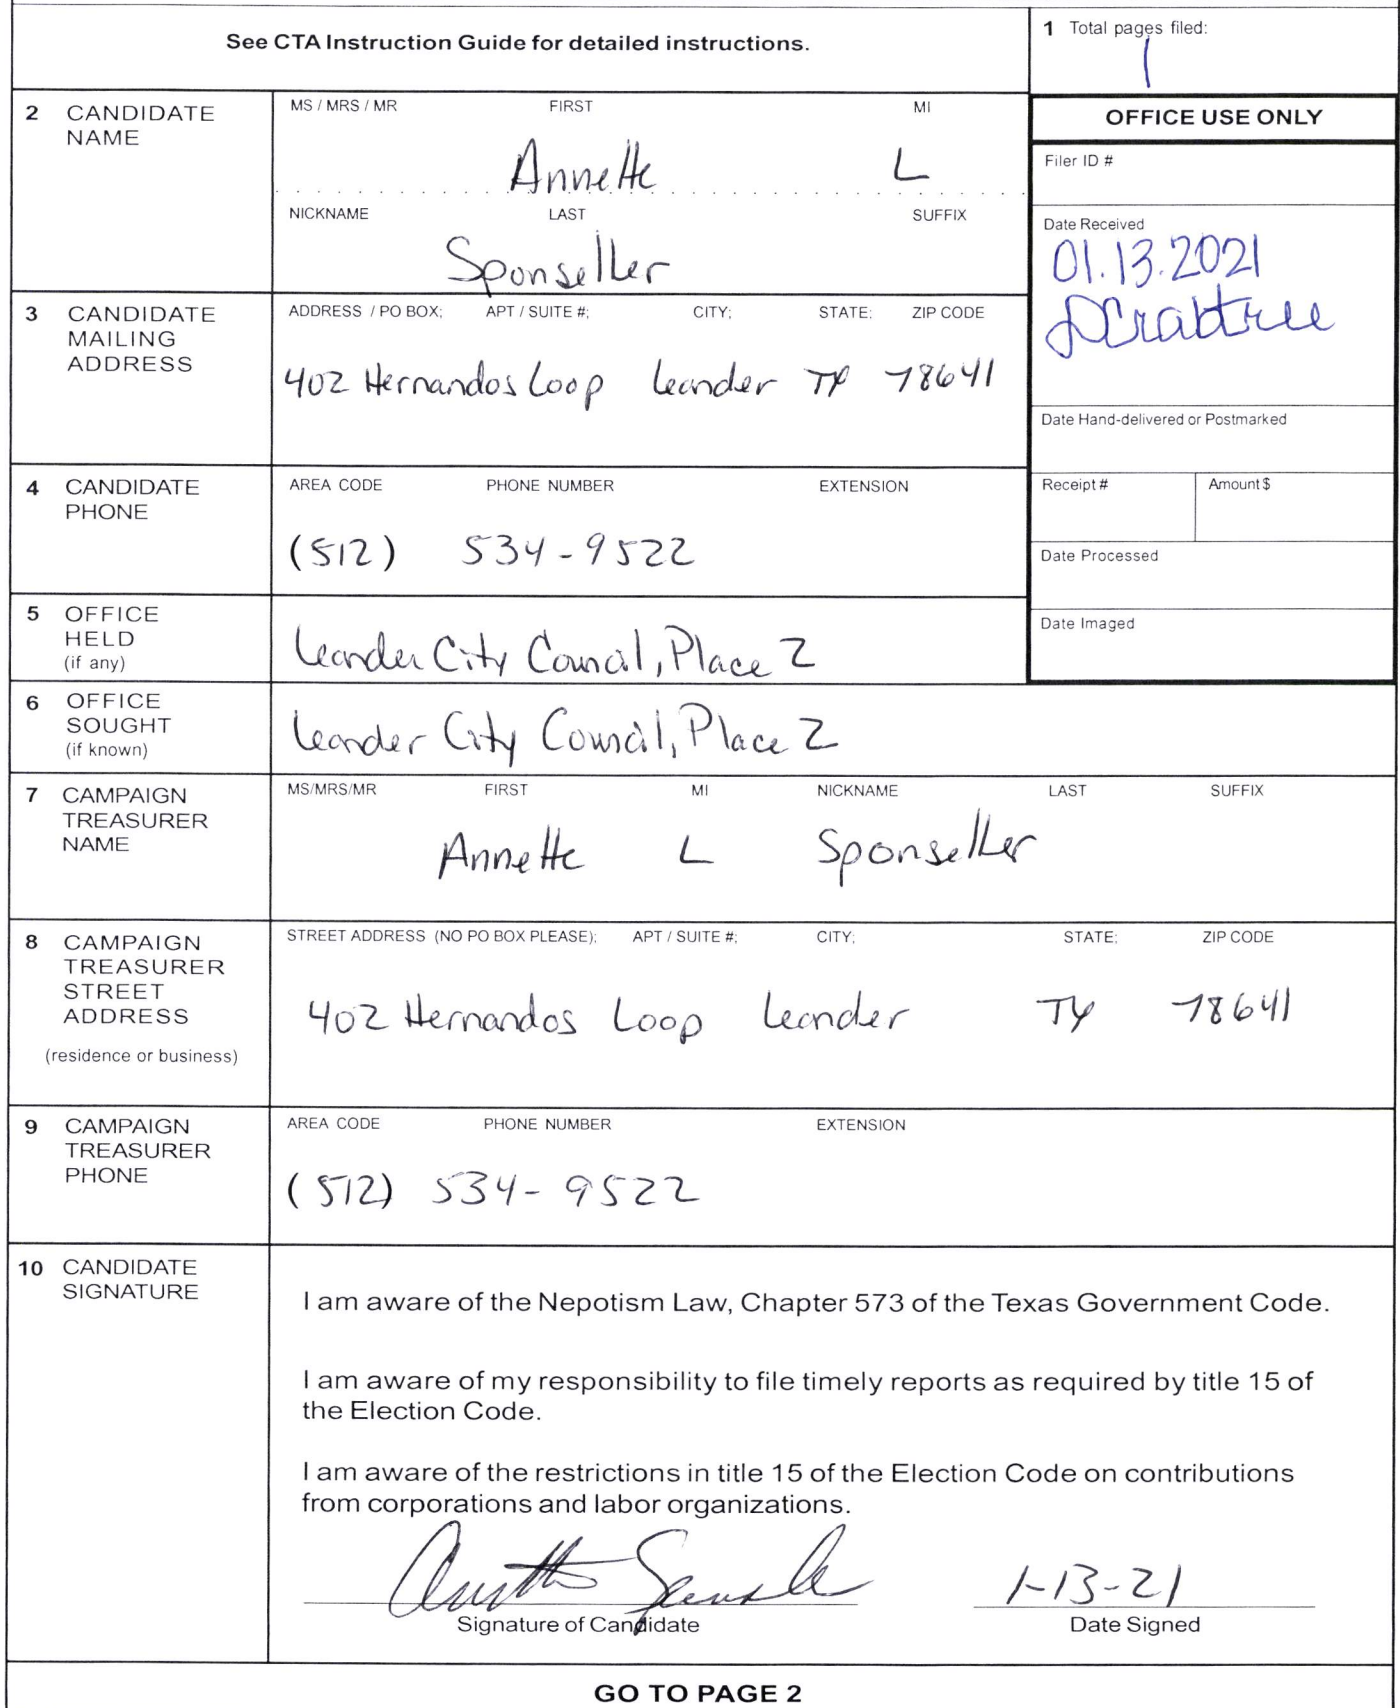 See CTA Instruction Guide for detailed instructions.
1 Total pages filed:
1
2 CANDIDATE NAME
MS / MRS / MR FIRST MI
Annette L
NICKNAME LAST SUFFIX
Sponseller
OFFICE USE ONLY
Filer ID #
Date Received
01.13.2021
DCrabtree
Date Hand-delivered or Postmarked
Receipt # Amount $
Date Processed
Date Imaged
3 CANDIDATE MAILING ADDRESS
ADDRESS / PO BOX; APT / SUITE #; CITY; STATE; ZIP CODE
402 Hernandos Loop Leander TX 78641
4 CANDIDATE PHONE
AREA CODE PHONE NUMBER EXTENSION
(512) 534-9522
5 OFFICE HELD (if any)
Leander City Council, Place 2
6 OFFICE SOUGHT (if known)
Leander City Council, Place 2
7 CAMPAIGN TREASURER NAME
MS/MRS/MR FIRST MI NICKNAME LAST SUFFIX
Annette L Sponseller
8 CAMPAIGN TREASURER STREET ADDRESS
(residence or business)
STREET ADDRESS (NO PO BOX PLEASE); APT / SUITE #; CITY; STATE; ZIP CODE
402 Hernandos Loop Leander TX 78641
9 CAMPAIGN TREASURER PHONE
AREA CODE PHONE NUMBER EXTENSION
(512) 534-9522
10 CANDIDATE SIGNATURE
I am aware of the Nepotism Law, Chapter 573 of the Texas Government Code.
I am aware of my responsibility to file timely reports as required by title 15 of
the Election Code.
I am aware of the restrictions in title 15 of the Election Code on contributions
from corporations and labor organizations.
1-13-21
Signature of Candidate Date Signed
GO TO PAGE 2